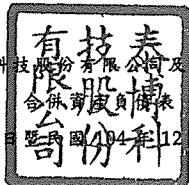 泰博科
技股份
有限公司
技股份有限公司及
合併資產負債表
日暨民國104年12